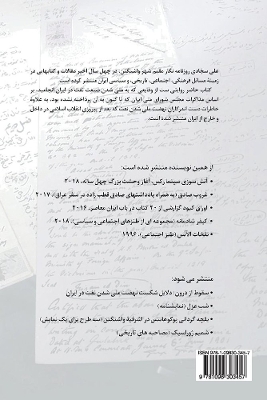 علی سجادی روزنامه نگار مقیم شهر واشنگتن، در چهل سال اخیر مقالات و کتابهایی در
زمینه مسائل فرهنگی، اجتماعی، تاریخی، و سیاسی ایران منتشر کرده است.
کتاب حاضر روایتی ست از وقایعی که به ملی شدن صنعت نفت در ایران انجامید، بر
اساس مذاکرات مجلس شورای ملی ایران که تا کنون به آن پرداخته نشده بود. به علاوه
خاطرات دست اندرکاران نهضت ملی شدن نفت که بعد از پیروزی انقلاب اسلامی در داخل
و خارج از ایران منتشر شده است.
از همین نویسنده منتشر شده است:
آتش سوزی سینما رکس، آغاز وحشت بزرگ چهل ساله، ۲۰۱۸
غروب صادق (به همراه یادداشتهای صادق قطب زاده در سفر عراق)، ۲۰۱۷
اوراق کبود گزارشی از ۲۰ کتاب در باب ایران معاصر، ۲۰۱۶
کیفر شادمانه (مجموعه ای از طنزهای اجتماعی و سیاسی)، ۲۰۱۸
نفیات الانس (طنز اجتماعی)، ۱۹۹۶
منتشر می شود:
سقوط از درون: دلایل شکست نهضت ملی شدن نفت در ایران
شب غزل (نمایشنامه)
باغچه گردانی پوکوهانتس در اشرفیۀ واشنگتن (سه طرح برای یک نمایش)
شمیم ژوراسیک (مصاحبه های تاریخی)